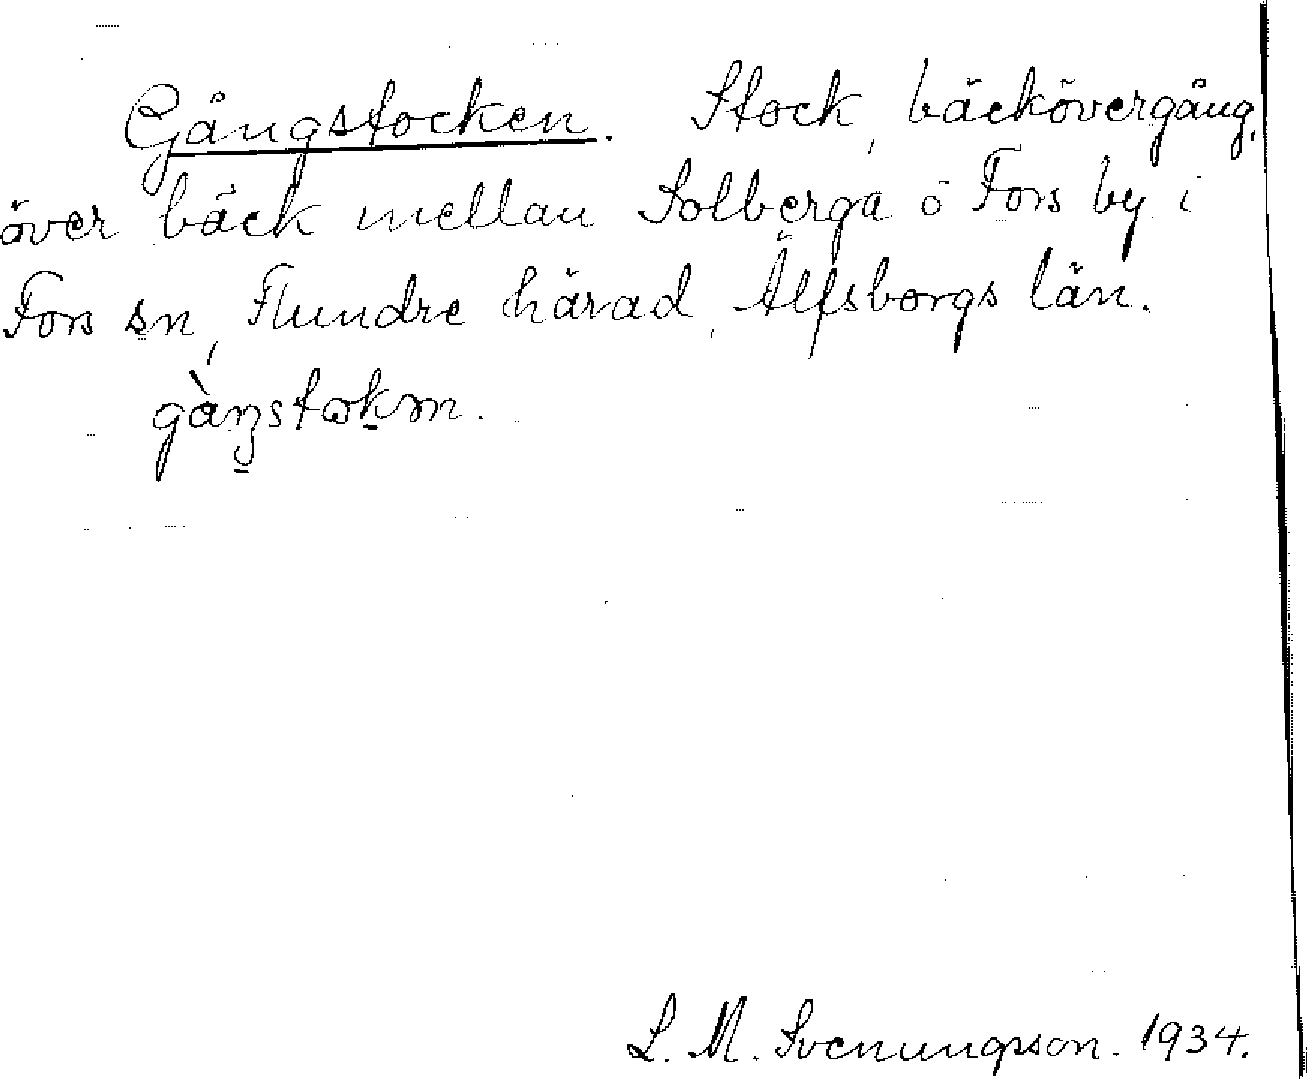 Gångstocken. Stock, bäckövergång,
över bäck mellan Solberga o Fors by i
Fors sn, Flundre härad, Älfsborgs län.
L. M. Svenungsson. 1934.